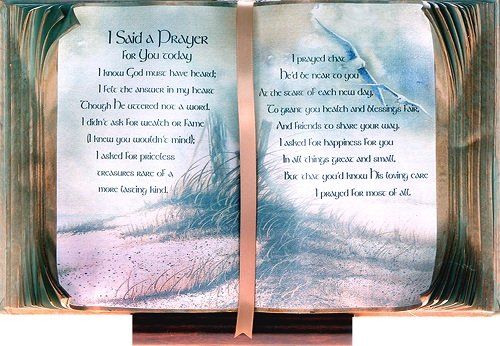 I Said a Prayer
for You today
I know God must have heard;
I felt the answer in my heart
Though He uttered not a word.
I didn't ask for wealth or fame
(I knew you wouldn't mind);
I asked for priceless
treasures rare of a
more lasting kind.
I prayed that
He'd be near to you
At the start of each new day,
To grant you health and blessings fair,
And friends to share your way.
I asked for happiness for you
In all things great and small,
But that you'd know His loving care
I prayed for most of all.